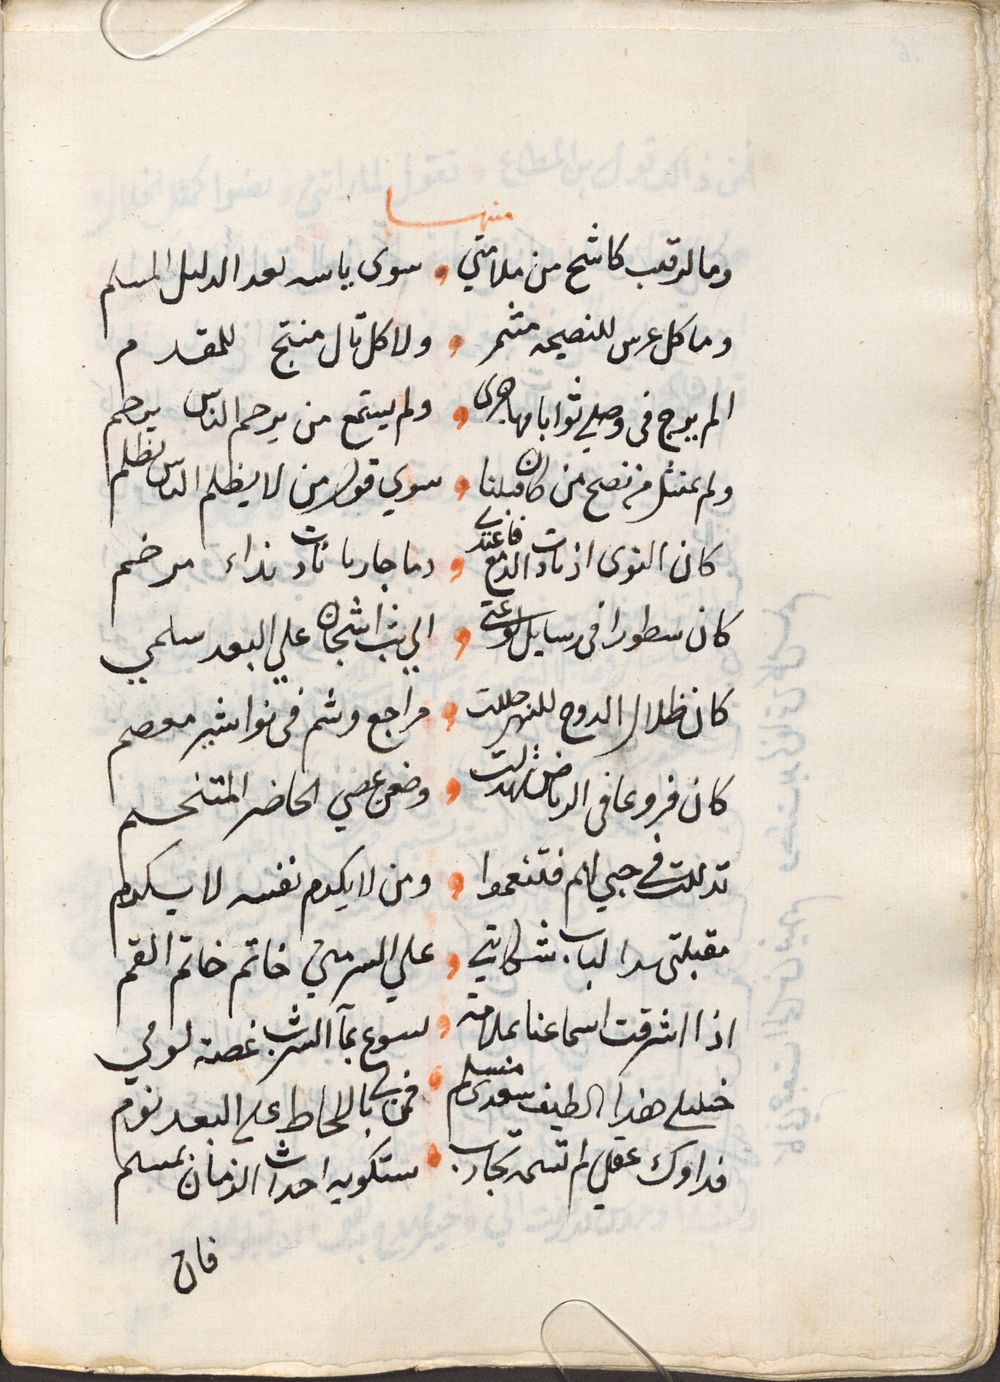 منها
وما لرقيب كاشح من ملامتي سوى ياسه بعد الدليل المسلم
وما كل غرس للنصيحه مثمر ولا كل تال منتج للمقدم
الم يرج في وصلي ثوابا مهاجري ولم يستمع من يرحم الناس يرحم
ولم يمتثل من نصح من كان قبلنا سوي قول من لا يظلم الناس يظلم
كان النوى اذ نادت الدمع فاغتدى دما جاريا نادت نداء مرخم
كان سطورا في رسايل لوعتي الي بث اشجان علي البعد سلمي
كان ظلال الدوح للنهر جللت مراجع وشم في نواشر معصم
كان فروعا في الرياض تهدلت وضعن عصي الحاضر المتخيم
تذللت في حبي لهم فتنعموا ومن لا يكرم نفسه لا يكرم
مقبلتي سدا لباب شكايتي علي السر مني خاتم خاتم الفم
اذا اشرقت اسماعنا بملامة نسوغ بماء الشرب غصة لومي
خليلي هذا الطيف سعدى مسلم فمن لي بالالحاظ علي البعد نوم
فداوك عقلي لم تسمه تجارب ستكويه احداث الزمان بميسم
فان